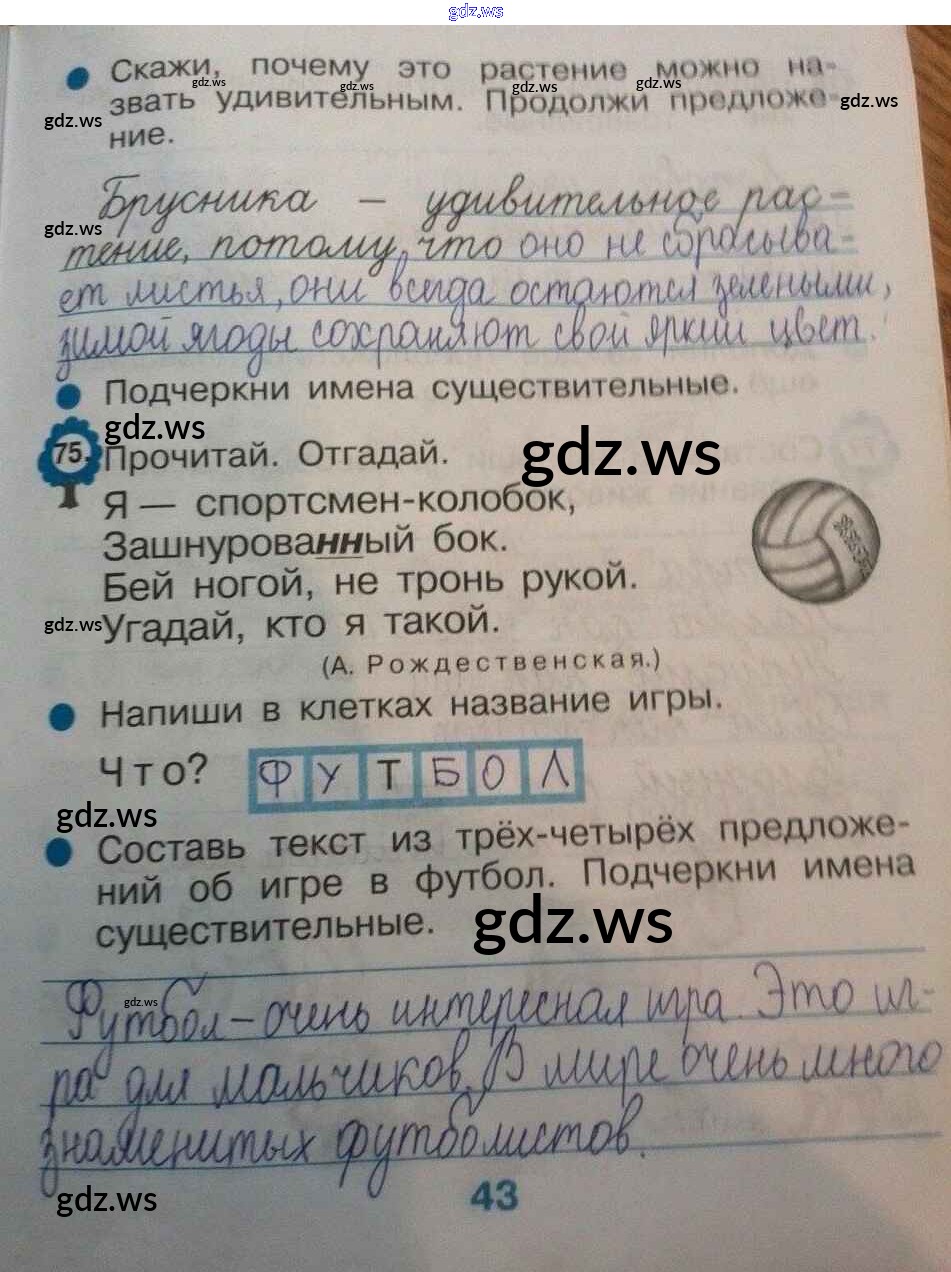 gdz.ws
Скажи, почему это растение можно на-
gdz.ws gdz.ws gdz.ws gdz.ws
звать удивительным. Продолжи предложе-
gdz.ws gdz.ws
ние.
Брусника – удивительное рас-
gdz.ws
тение, потому что оно не сбрасыва-
ет листья, они всегда остаются зелеными,
зимой ягоды сохраняют свой яркий цвет.
Подчеркни имена существительные.
gdz.ws
75. Прочитай. Отгадай.
gdz.ws
Я — спортсмен-колобок,
Зашнурованный бок.
Бей ногой, не тронь рукой.
gdz.ws Угадай, кто я такой.
(А. Рождественская.)
Напиши в клетках название игры.
Что? ФУТБОЛ
gdz.ws
Составь текст из трёх-четырёх предложе-
ний об игре в футбол. Подчеркни имена
существительные.
gdz.ws
gdz.ws
Футбол – очень интересная игра. Это иг-
ра для мальчиков. В мире очень много
знаменитых футболистов.
gdz.ws
43